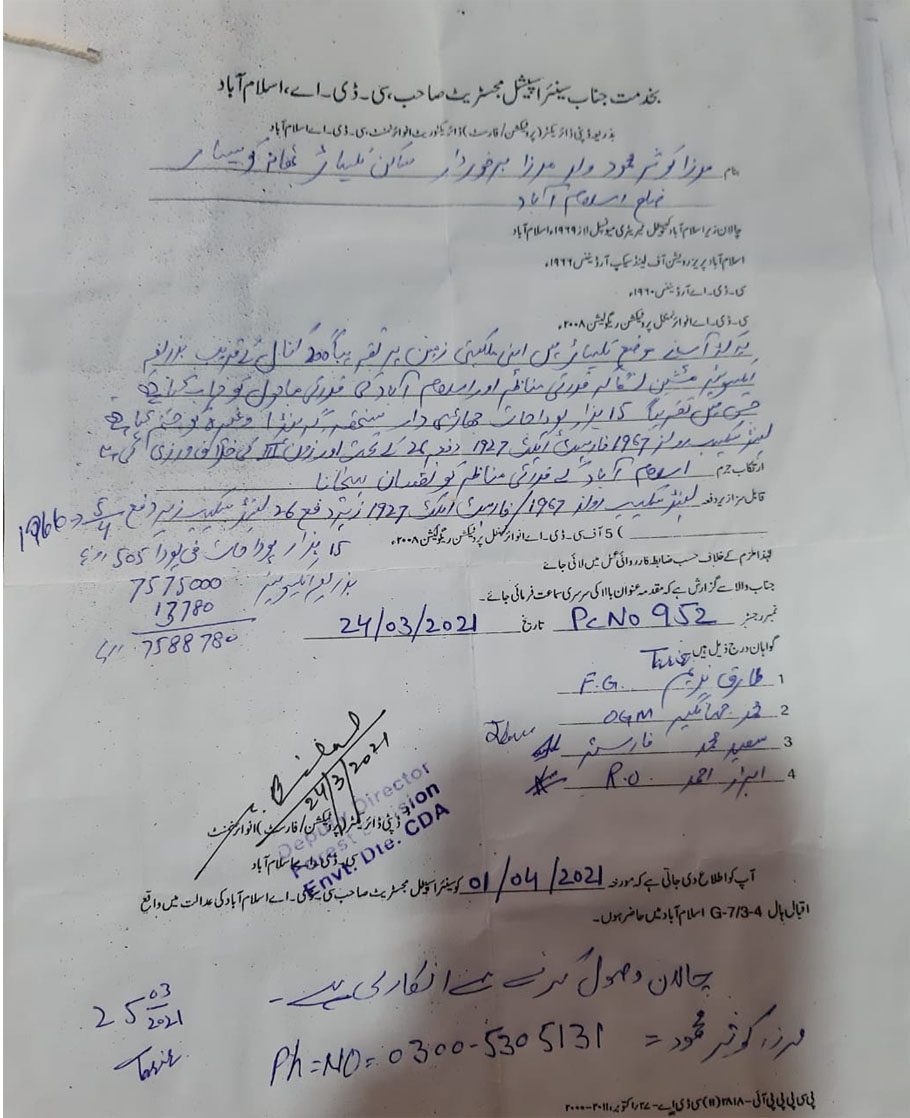 بخدمت جناب سینئر اسپیشل مجسٹریٹ صاحب، سی۔ڈی۔اے، اسلام آباد
بذریعہ ڈپٹی ڈائریکٹر (پروٹیکشن/فارسٹ) ڈائریکٹوریٹ انوائرنمنٹ، سی۔ڈی۔اے اسلام آباد
بنام مرزا کوثر محمود ولد مرزا برخوردار ساکن تلہاڑ تھانہ کوہسار
ضلع اسلام آباد
چالان زیر اسلام آباد کیپیٹل ٹیریٹری میونسپل لاز ۱۹۶۹ء اسلام آباد
اسلام آباد پریزرویشن آف لینڈ سکیپ آرڈیننس ۱۹۶۶ء
سی۔ڈی۔اے آرڈیننس ۱۹۶۰ء
سی۔ڈی۔اے انوائرنمنٹل پروٹیکشن ریگولیشن ۲۰۰۸ء
موضع تلہاڑ میں اپنی ملکیتی زمین پر تقریباً 200 کنال کے قریب بذریعہ
مشین لگا کر قدرتی مناظر اور اسلام آباد کی قدرتی ماحول کو
جس میں تقریباً 15 ہزار پودا جات جھاڑی دار وغیرہ کو ختم کیا ہے
لینڈ سکیپ رولز 1967 فارسٹ ایکٹ 1927 دفعہ 26 کے تحت اور زون III کی خلاف ورزی کی ہے
ارتکاب جرم اسلام آباد کے قدرتی مناظر کو نقصان پہنچانا
قابل سزا زیر دفعہ لینڈ سکیپ رولز 1967/فارسٹ ایکٹ 1927 زیر دفع 26 لینڈ سکیپ زیر دفع 5/4 1966
) 5 آف سی۔ڈی۔اے انوائرنمنٹل پروٹیکشن ریگولیشن ۲۰۰۸ء
15 ہزار پودا جات فی پودا 505 روپے
لہذا ملزم کے خلاف حسب ضابطہ کارروائی عمل میں لائی جائے
7575000 بذریعہ
جناب والا سے گزارش ہے کہ مقدمہ عنوان بالا کی سرسری سماعت فرمائی جائے۔
13780
7588780
نمبر رجسٹر PC No 952 تاریخ 24/03/2021
گواہان درج ذیل ہیں
1 طارق ندیم F.G.
2 محمد جہانگیر OGM
3 سعید محمد فارسٹر
4 ابرار احمد R.O.
Bilal
24/3/2021
Deputy Director
Forest Division
Envt. Dte. CDA
ڈپٹی ڈائریکٹر (پروٹیکشن/فارسٹ) انوائرنمنٹ
سی۔ڈی۔اے اسلام آباد
آپ کو اطلاع دی جاتی ہے کہ مورخہ 01/04/2021 کو سینئر اسپیشل مجسٹریٹ صاحب سی۔ڈی۔اے اسلام آباد کی عدالت میں واقع
اقبال ہال G-7/3-4 اسلام آباد میں حاضر ہوں۔
چالان وصول کرنے سے انکاری ہے۔
25 03/2021
Tariq
مرزا کوثر محمود = Ph=NO= 0300-5305131